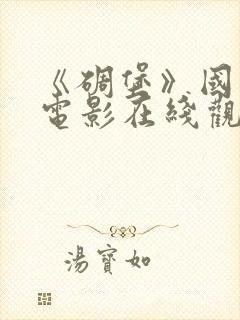 《碉堡》國
電影在綫觀
湯寶如